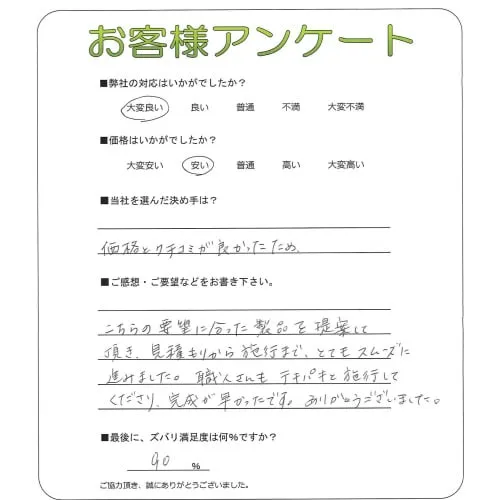 お客様アンケート
■弊社の対応はいかがでしたか?
大変良い 良い 普通 不満 大変不満
■価格はいかがでしたか?
大変安い 安い 普通 高い 大変高い
■当社を選んだ決め手は?
価格とクチコミが良かったため、
■ご感想・ご要望などをお書き下さい。
こちらの要望に合った製品を提案して
頂き、見積もりから施行まで、とてもスムーズに
進みました。職人さんもテキパキと施行して
くださり、完成が早かったです。ありがとうございました。
■最後に、ズバリ満足度は何%ですか?
90 %
ご協力頂き、誠にありがとうございました。